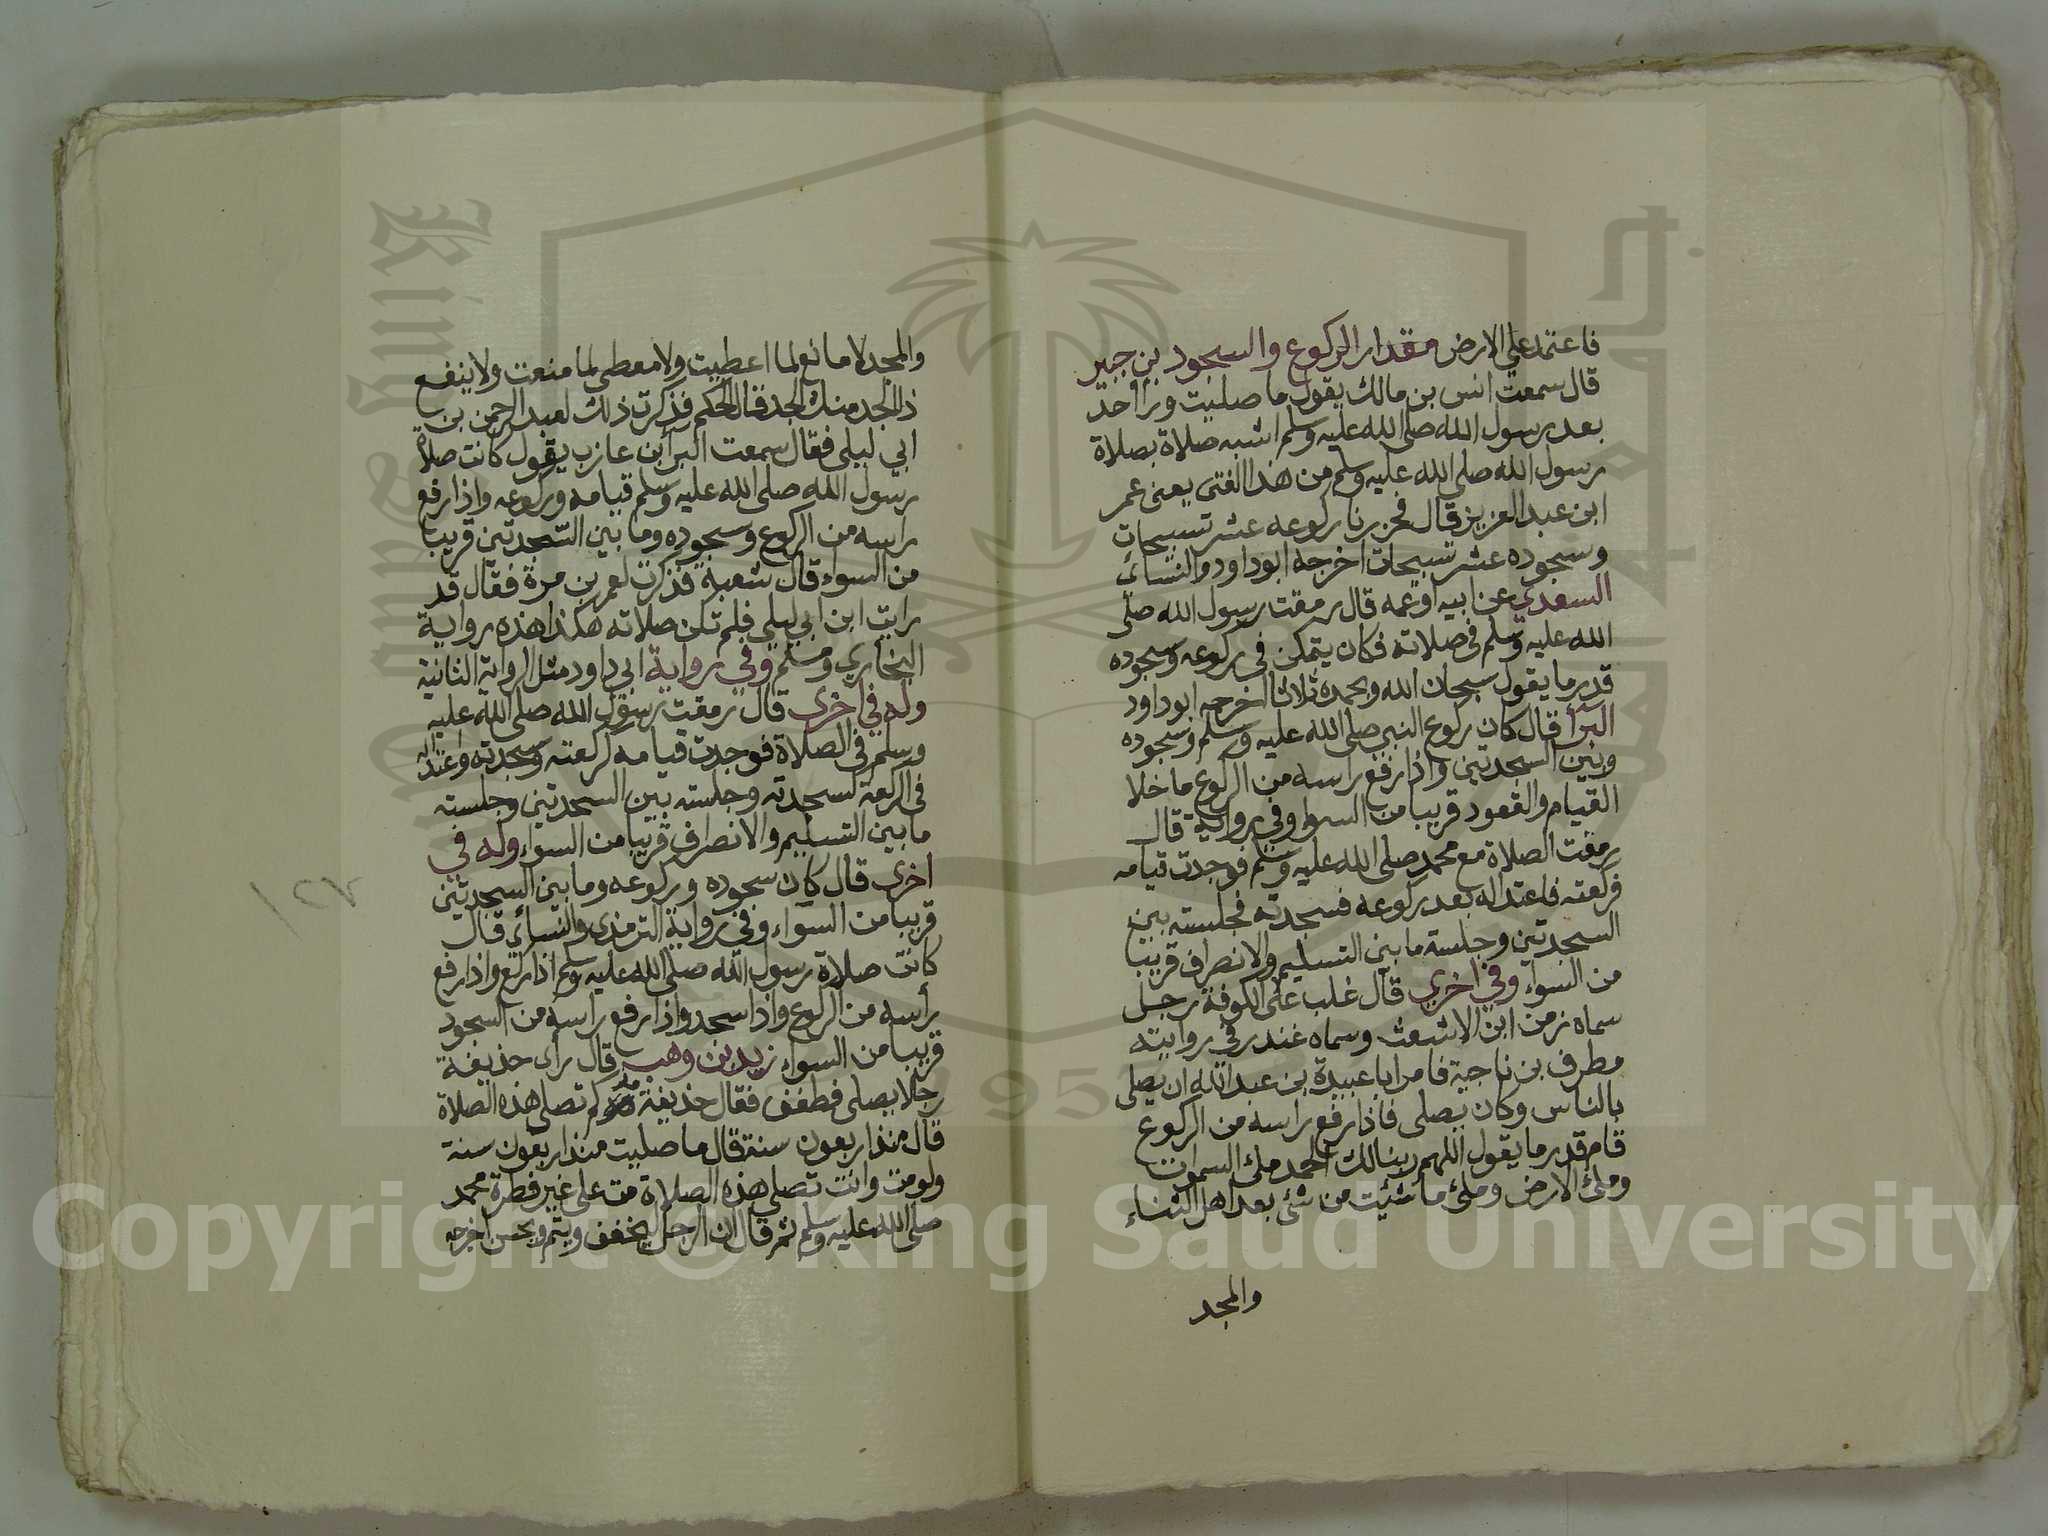 فاعتمد علي الارض مقدار الركوع والسجود بن جبير
قال سمعت انس بن مالك يقول ما صليت ورا احد
بعد رسول الله صلى الله عليه وسلم اشبه صلاة بصلاة
رسول الله صلى الله عليه وسلم من هذا الفتى يعنى عمر
ابن عبد العزيز قال فحزرنا ركوعه عشر تسبيحات
وسجوده عشر تسبيحات اخرجه ابو داود والنسائي
السعدي عن ابيه او عمه قال رمقت رسول الله صلى
الله عليه وسلم فى صلاته فكان يتمكن فى ركوعه وسجوده
قدر ما يقول سبحان الله وبحمده ثلاثا اخرجه ابو داود
البرأ قال كان ركوع النبي صلى الله عليه وسلم وسجوده
وبين السجدتين واذا رفع راسه من الركوع ما خلا
القيام والقعود قريبا من السوا وفي رواية قال
رمقت الصلاة مع محمد صلى الله عليه وسلم فوجدت قيامه
فركعته فاعتداله بعد ركوعه فسجدته فجلسته بين
السجدتين وجلسة ما بين التسليم والانصراف قريبا
من السواء وفي اخري قال غلب على الكوفة رجل
سماه زمن ابن الاشعث وسماه غندر في روايته
مطرف بن ناجية فامر ابا عبيدة بن عبد الله ان يصلى
بالناس وكان يصلى فاذا رفع راسه من الركوع
قام قدر ما يقول اللهم ربنا لك الحمد ملئ السموات
وملئ الارض وملئ ما شئيت من شئ بعد اهل الثناء
والمجد
والمجد لا مانع لما اعطيت ولا معطى لما منعت ولا ينفع
ذا الجد منك الجد قال الحكم فذكرت ذلك لعبد الرحمن بن
ابي ليلى فقال سمعت البرأ بن عازب يقول كانت صلاة
رسول الله صلى الله عليه وسلم قيامه وركوعه واذا رفع
راسه من الركوع وسجوده وما بين السجدتين قريبا
من السواء قال شعبة فذكرت لعمر بن مرة فقال قد
رايت ابن ابي ليلى فلم تكن صلاته هكذا هذه رواية
البخاري ومسلم وفي رواية ابى داود مثل الرواية الثانية
وله في اخرى قال رمقت رسول الله صلى الله عليه
وسلم فى الصلاة فوجدت قيامه كركعته وسجدته واعتداله
فى الركعة كسجدته وجلسته بين السجدتين وجلسته
ما بين التسليم والانصراف قريبا من السواء وله في
اخرى قال كان سجوده وركوعه وما بين السجدتين
قريبا من السواء وفى رواية الترمذى والنسائ قال
كانت صلاة رسول الله صلى الله عليه وسلم اذا ركع واذا رفع
رأسه من الركوع واذا سجد واذا رفع راسه من السجود
قريبا من السواء زيد بن وهب قال رأى حذيفة
رجلا يصلى فطفف فقال حذيفة مذ كم تصلى هذه الصلاة
قال منذ اربعون سنة قال ما صليت منذ اربعون سنة
ولو مت وانت تصلي هذه الصلاة مت على غير فطرة محمد
صلى الله عليه وسلم ثم قال ان الرجل ليخفف ويتم ويحسن اخرجه
Copyright © King Saud University
King Saud
1957